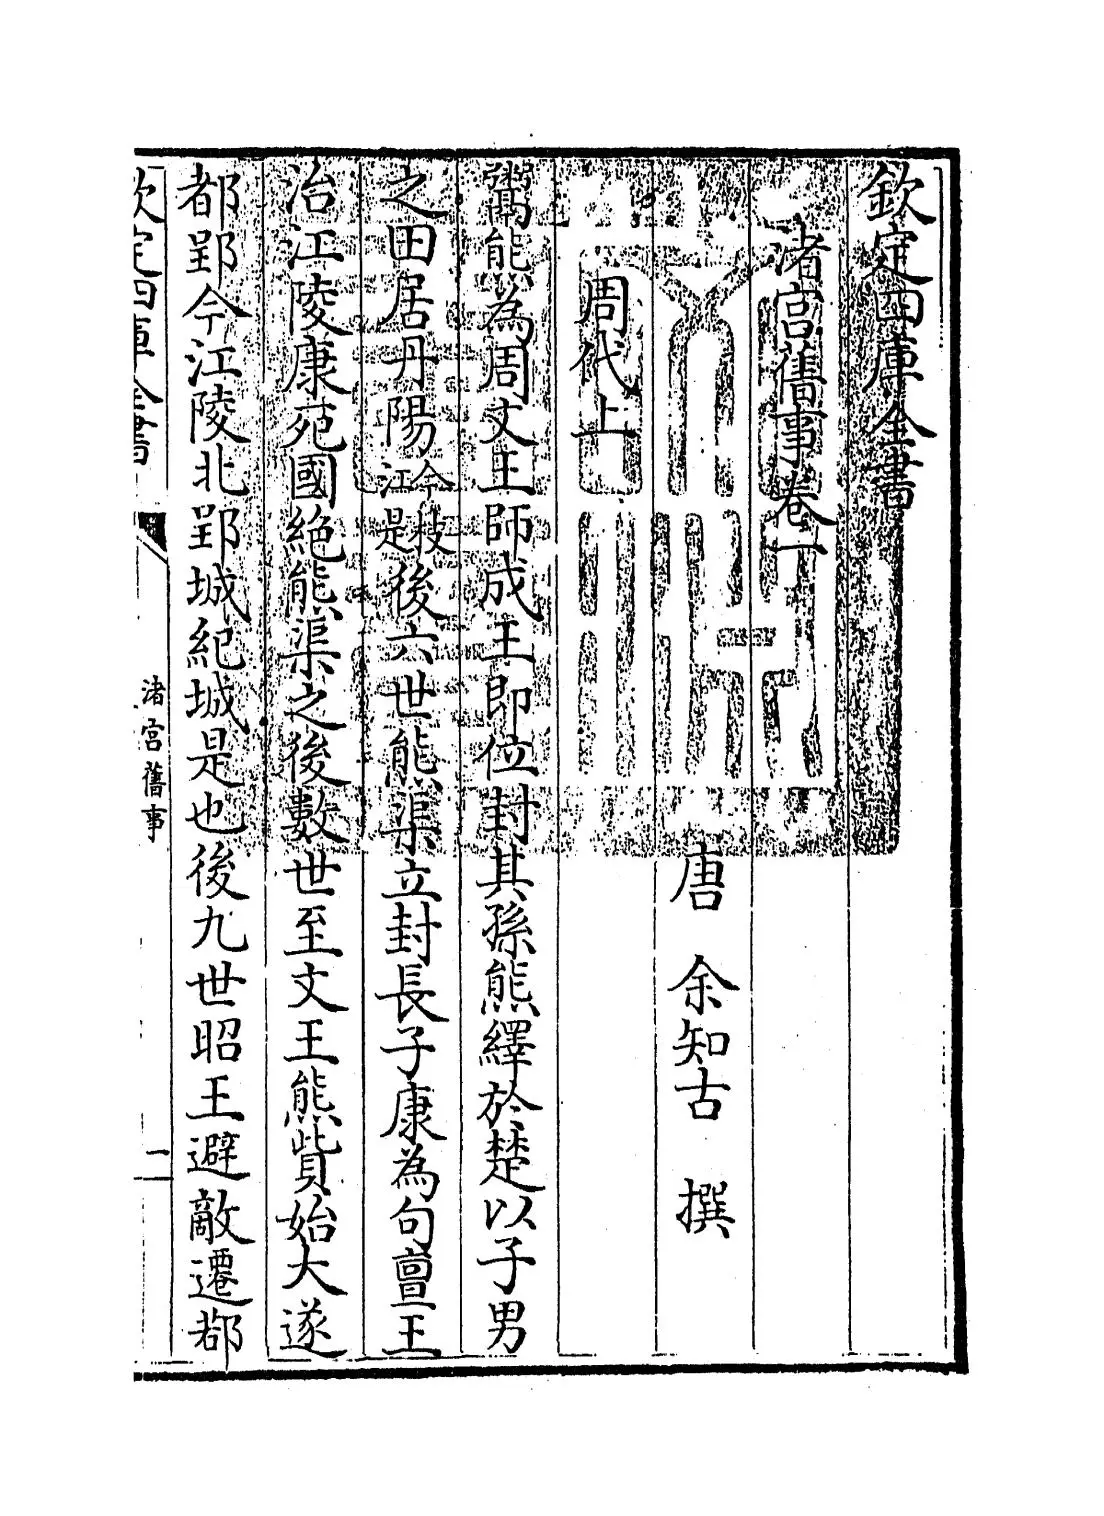 欽定四庫全書
渚宮舊事卷一
唐 余知古 撰
周代上
鬻熊為周文王師成王即位封其孫熊繹於楚以子男
之田居丹陽今枝江是後六世熊渠立封長子康為句亶王
治江陵康苑國絶熊渠之後數世至文王熊貲始大遂
都郢今江陵北郢城紀城是也後九世昭王避敵遷都
欽定四庫全書
渚宮舊事
一